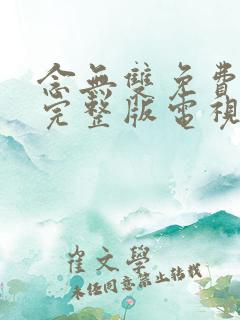 念無雙免費
完整版電視
崔文學
未經同意禁止轉載